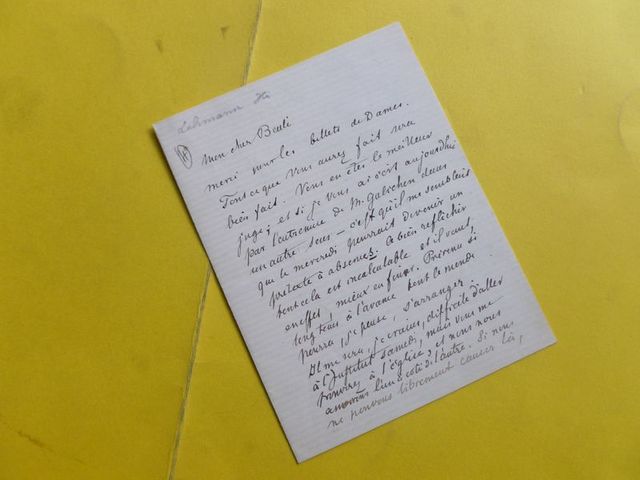 Lehmann He
Mon cher Bailli
merci pour les billets de Dames.
Tout ce que vous aurez fait sera
bien fait. Vous en êtes le meilleur
juge ; et si je vous ai écrit aujourd'hui
par l'entremise de M. Galichon dans
un autre sens – c'est qu'il me semblait
que le mercredi pourrait devenir un
prétexte à absences. à bien réfléchir
tout cela est incalculable et il vaut
en effet, mieux en finir. Prévenu si
longtemps à l'avance tout le monde
pourra, je pense, s'arranger
Il me sera, je crains, difficile d'aller
à l'Institut samedi, mais vous me
trouverez à l'église et nous nous
l'un à côté de l'autre. Si nous
ne pouvons librement causer là,